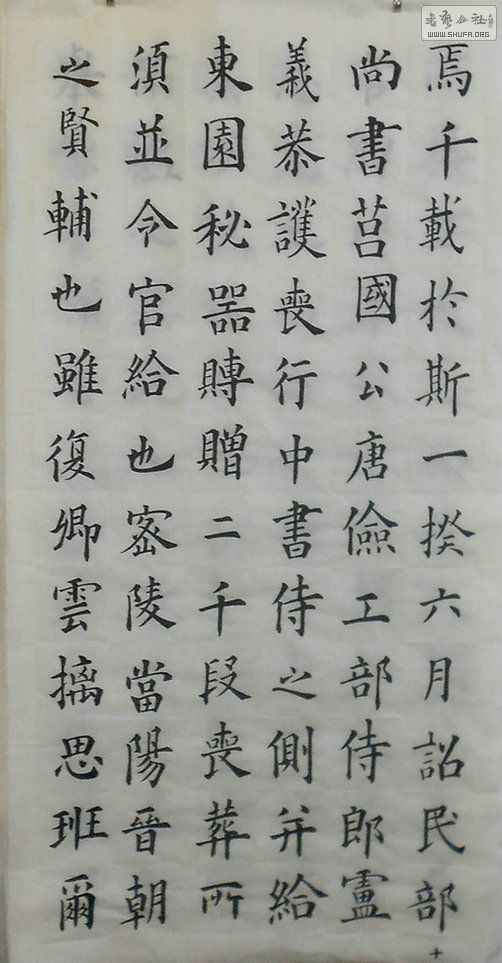 焉千載於斯一揆六月詔民部
尚書莒國公唐儉工部侍郎盧
義恭護喪行中書侍之側并給
東園秘器賻贈二千段喪葬所
須並令官給也宻陵當陽晉朝
之賢輔也雖復卿雲摛思班爾
十
書藝公社
WWW.SHUFA.ORG